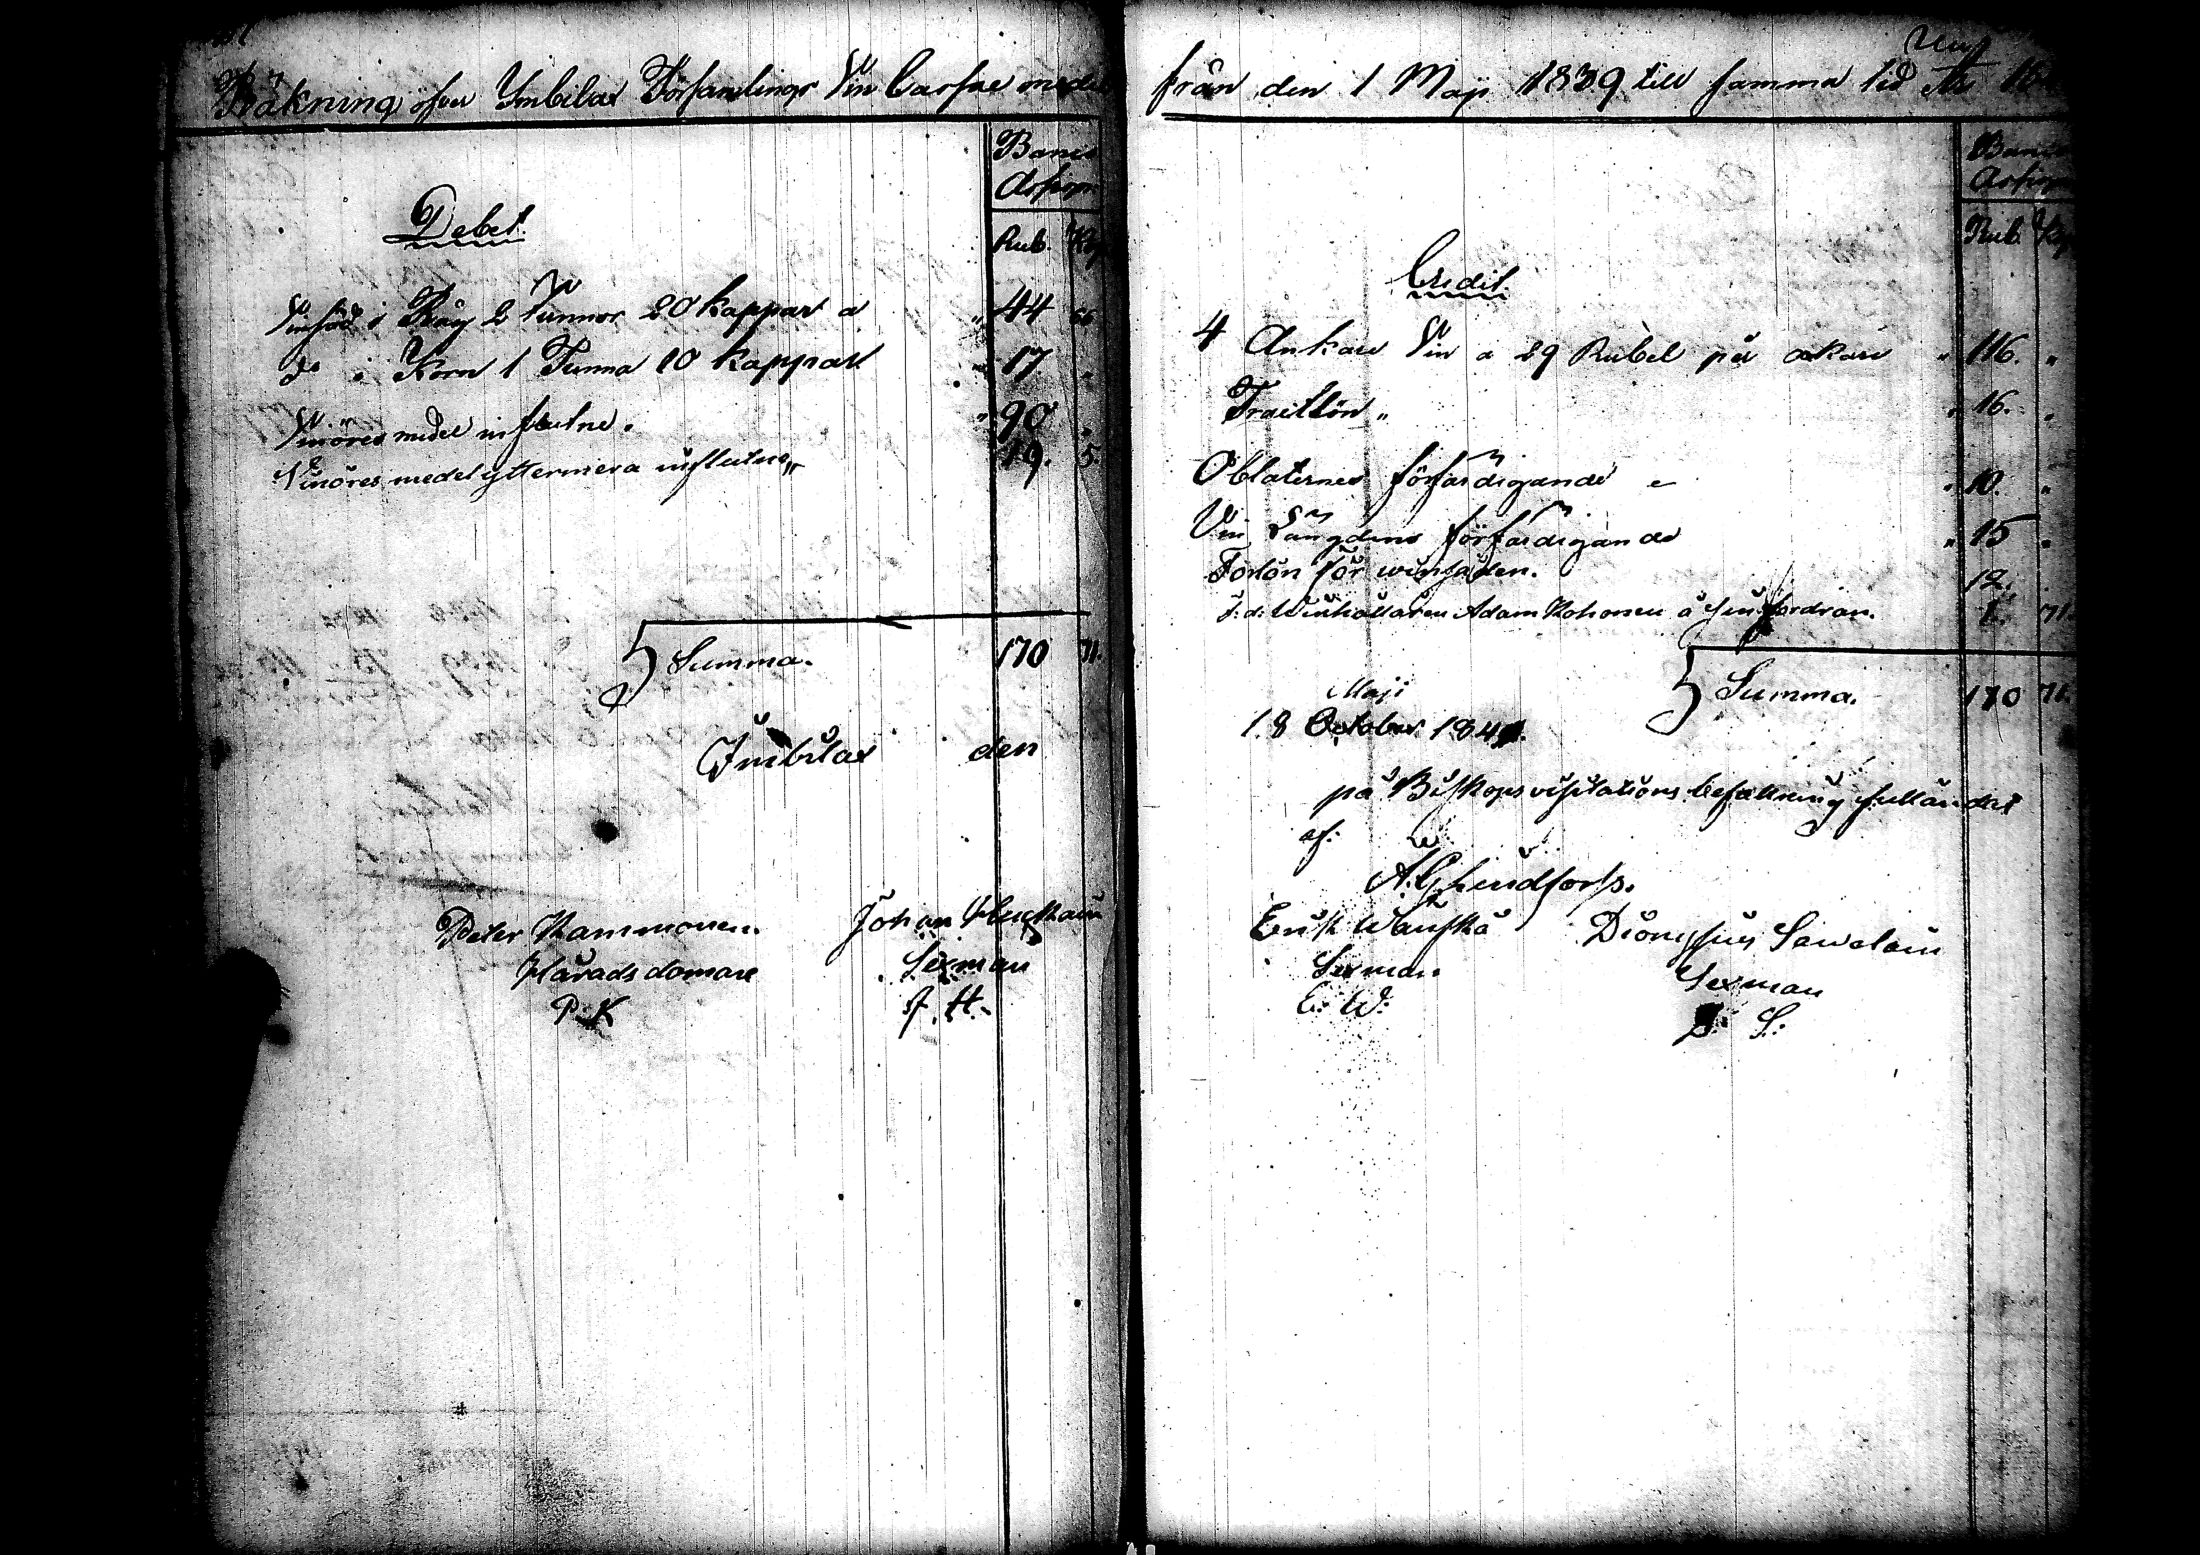 Räkning öfver Imbilax Församlings Vin Cassae medel
Banco
Assign.
Debet.
Rub. Kop
Vinsäd i Råg 2 Tunnor 20 kappar a „ 44 66
do i Korn 1 Tunna 10 kappar „ 17 „
Vinöres medel influtne. „ 90 „
Vinöres medel yttermera influtne „ 19. 5.
Summa. 170 71.
Imbilax den
Peter Kammonen. Johan
Häradsdomare Sexman
P. K J. H.
från den 1 Maji 1839 till samma tid
Banco
Assign
Rub. Kop
Credit.
4 Ankare Vin a 29 Rubel per ankare „ 116. „
Fraktlön „ „ 16. „
Oblaternes förfärdigande „ 10. „
Vin Längdens förfärdigande „ 15 „
Forlön för winsäden. 12.
Winhållaren Adam Kohonen å sin fordran. 1. 71.
Summa. 170 71.
Maji
18 October 184
på Biskops visitations befallning fulländat
af:
A. G. Lindforss.
Erik Wanskä Dionysius Sawolain
Sexman Sexman
E. W. D. S.